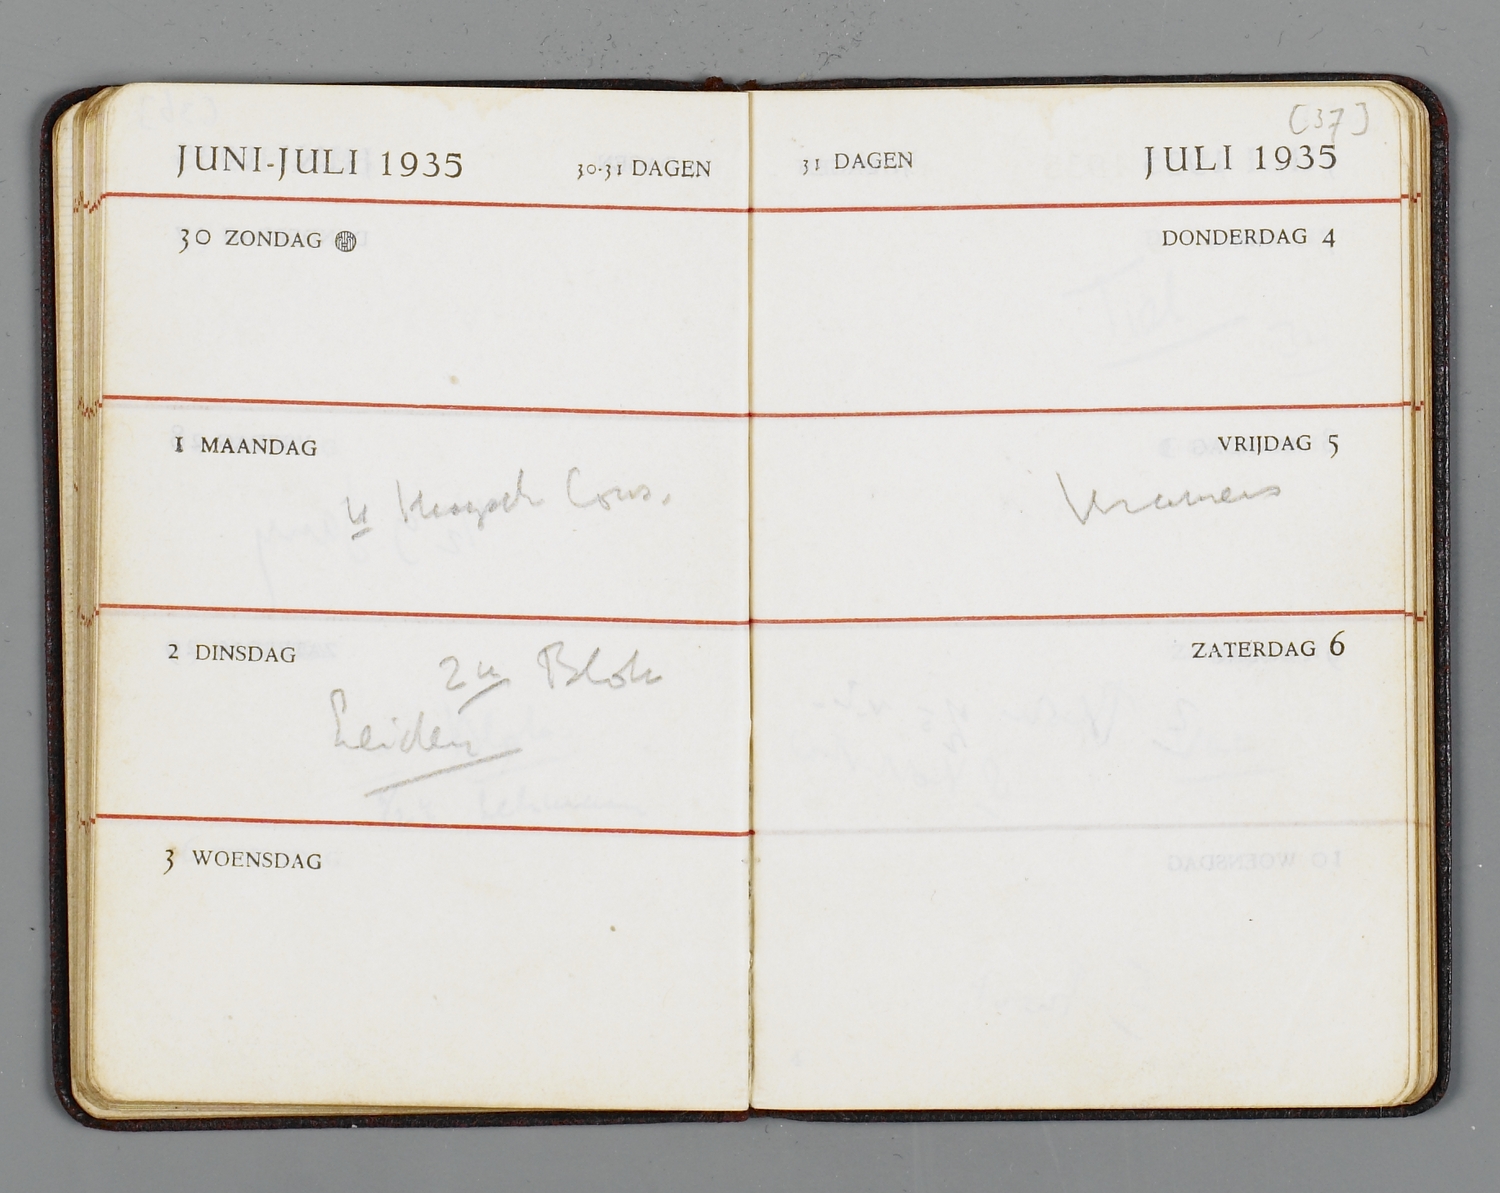 JUNI-JULI 1935 30-31 DAGEN
30 ZONDAG
1 MAANDAG
Haagsch Cons.
2 DINSDAG
2u Blok
Leiden
3 WOENSDAG
[37]
31 DAGEN JULI 1935
DONDERDAG 4
VRIJDAG 5
Kramers
ZATERDAG 6